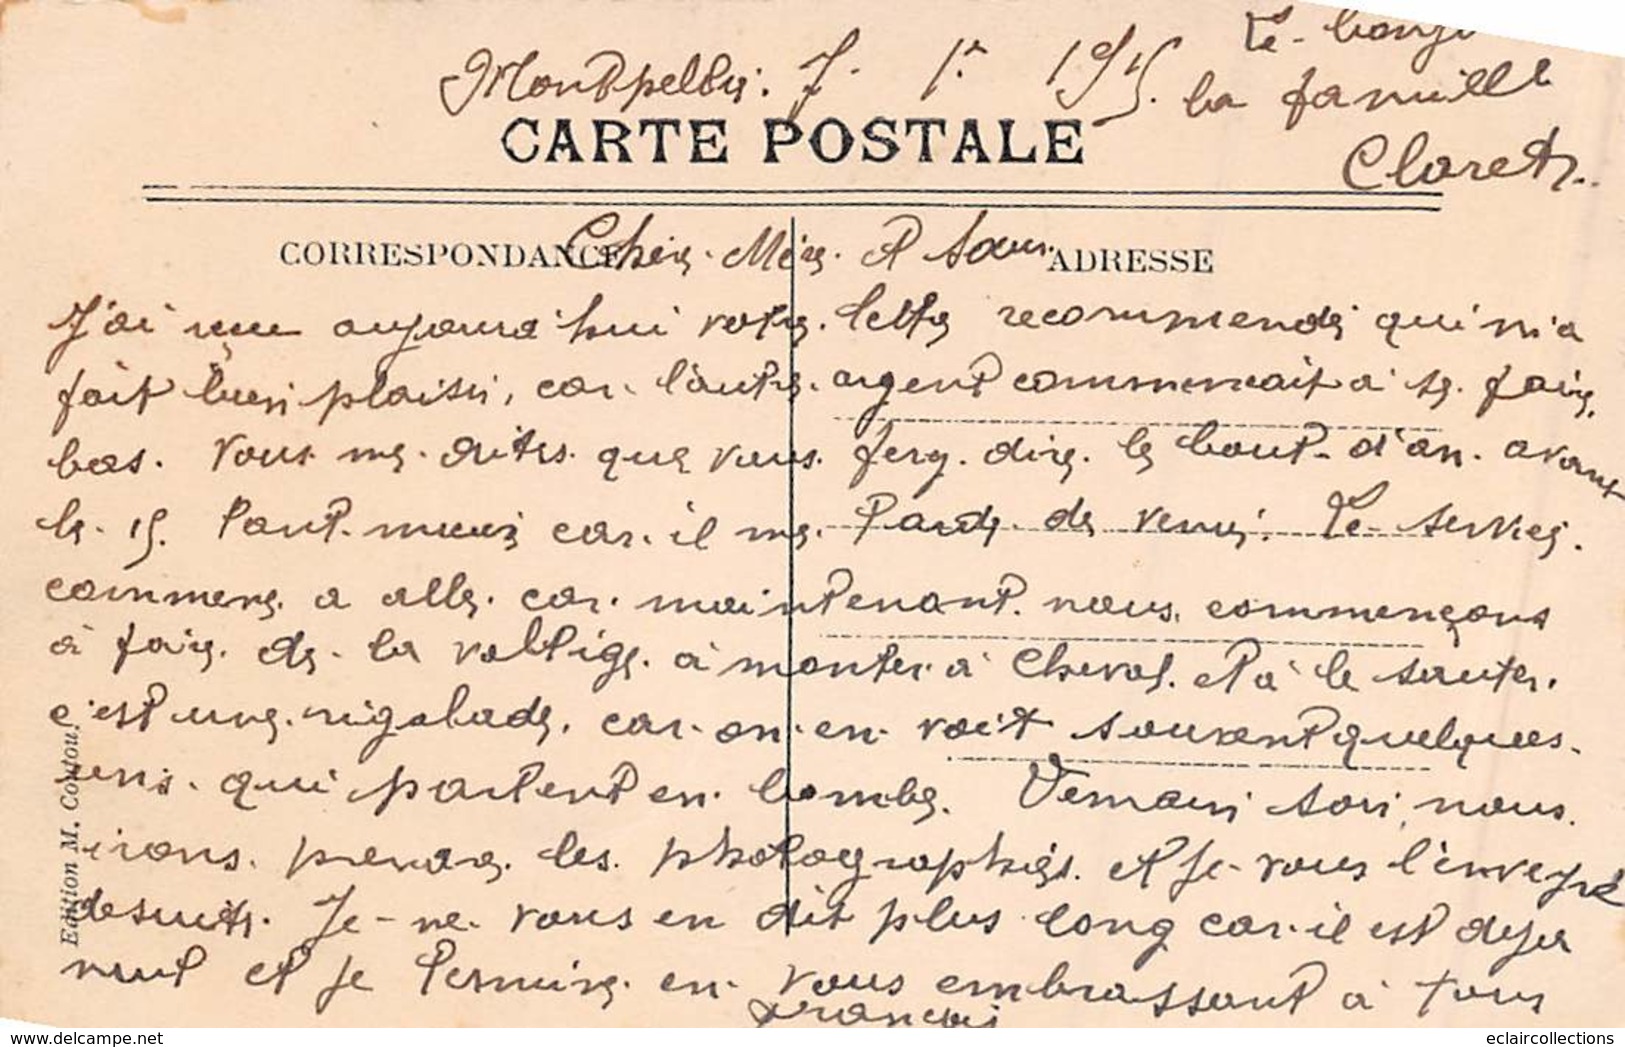 Le bonj
Montpellier. 7. 1er 1915. la famille
CARTE POSTALE
Claret
CORRESPONDANCE
ADRESSE
Chère Mère et Sœur
J'ai reçu aujourd'hui votre lettre recommendé qui m'a
fait bien plaisir, car l'autre argent commencait a se faire
bas. Vous me dites que vous fery dire le bout d'an. avant
le 15. Tant mieux car il me tarde de venir. Le service
commence a alle car maintenant nous commençons
à faire de la voltige à monter à cheval et à le sauter.
c'est une rigolade, car on en voit souvent quelques
uns qui partent en bombe. Demain soir nous
irons prendre les photographies et je vous l'enveyré
desuite. Je ne vous en dit plus long car il est deja
nuit et je termine en vous embrassant à tous
François
Edition M. Coutouly
eclaircollections
www.delcampe.net